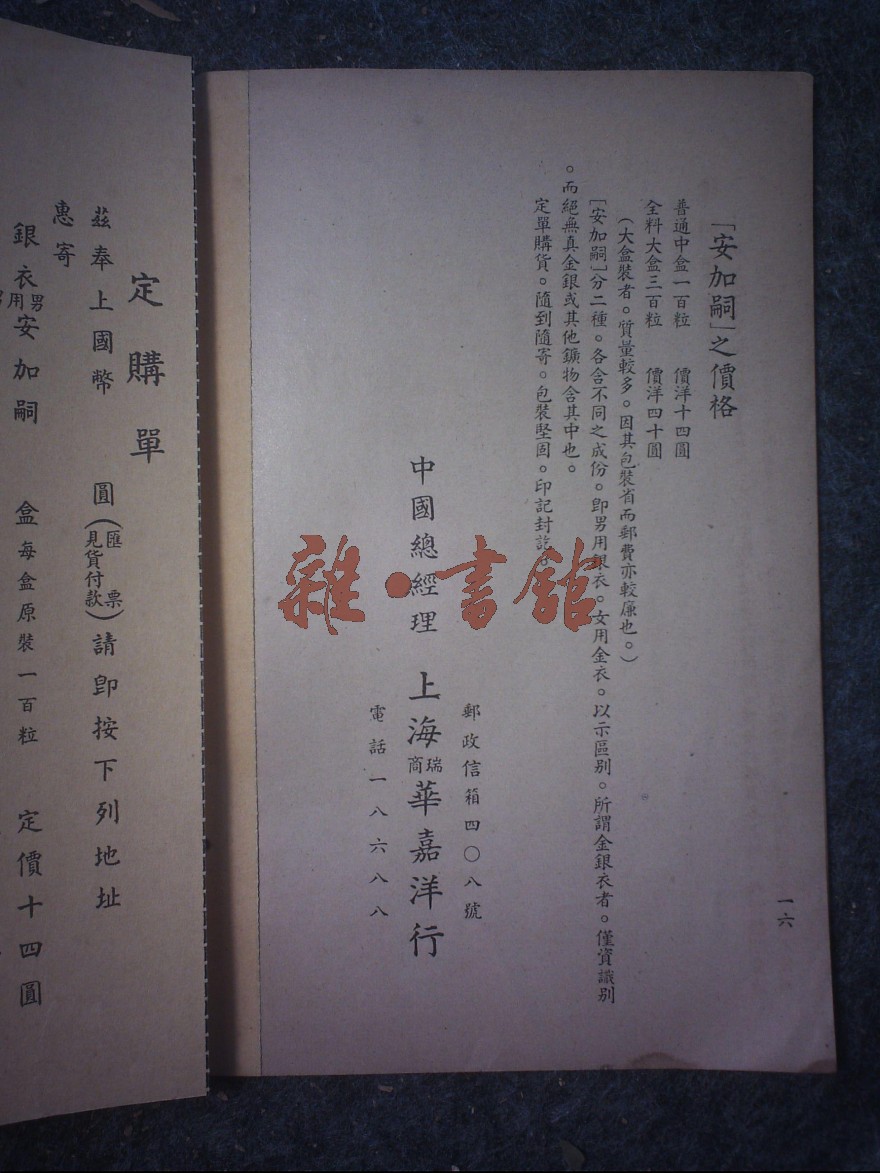 「安加嗣」之價格
普通中盒一百粒　價洋十四圓
全料大盒三百粒　價洋四十圓
（大盒裝者。質量較多。因其包裝省而郵費亦較廉也。）
［安加嗣］分二種。各含不同之成份。卽男用銀衣。女用金衣。以示區别。所謂金銀衣者。僅資識别
。而絕無真金銀或其他鑛物含其中也。
定單購貨。隨到隨寄。包裝堅固。印記封訖。
郵政信箱四〇八號
中國總經理　上海瑞商華嘉洋行
電話一八六八八
一六
定購單
茲奉上國幣　圓（匯票見貨付款）請卽按下列地址
惠寄
銀衣男用安加嗣　盒每盒原裝一百粒　定價十四圓
雜·書館